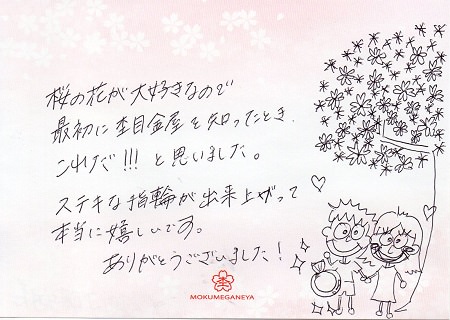 桜の花が大好きなので
最初に杢目金屋を知ったとき、
これだ!!!と思いました。
ステキな指輪が出来上がって
本当に嬉しいです。
ありがとうございました!
MOKUMEGANEYA